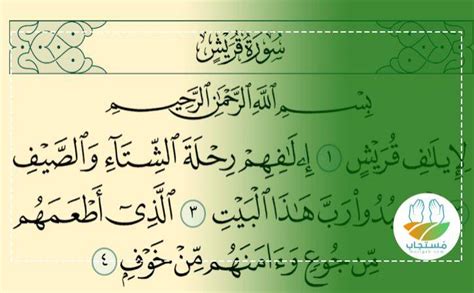 سُورَةُ قُرَيْشٍ
بِسْمِ اللَّهِ الرَّحْمَٰنِ الرَّحِيمِ
لِإِيلَٰفِ قُرَيْشٍ ١ إِۦلَٰفِهِمْ رِحْلَةَ الشِّتَآءِ وَالصَّيْفِ
بُدُوا۟ رَبَّ هَٰذَا الْبَيْتِ ٣ الَّذِىٓ أَطْعَمَهُم
مِّن جُوعٍ وَءَامَنَهُم مِّنْ خَوْفٍ ٤
مُستجاب